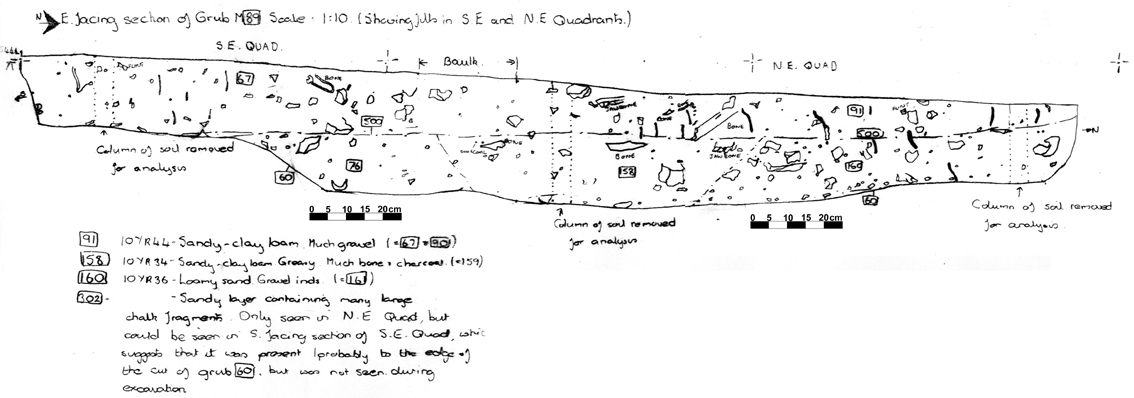 N E. facing section of Grub M 89 Scale - 1:10. (Showing fills in S.E and N.E Quadrants.)
S.E. QUAD.
Baulk
N.E. QUAD
67
BONE
91
500
500
BONE
BONE
BONE
JAW BONE
76
60
158
160
60
N
Column of soil removed
for analysis
0 5 10 15 20cm
Column of soil removed
for analysis
0 5 10 15 20cm
Column of soil removed
for analysis.
91 10YR44 - Sandy-clay loam. Much gravel (= 67 = 90)
158 10YR34 - Sandy-clay loam Greasy Much bone + charcoal. (=159)
160 10YR36 - Loamy sand Gravel incls. (= 161)
302 - - Sandy layer containing many large
chalk fragments. Only seen in N.E Quad, but
could be seen in S. facing section of S.E. Quad, whic
suggests that it was present (probably to the edge of
the cut of grub 60, but was not seen during
excavation